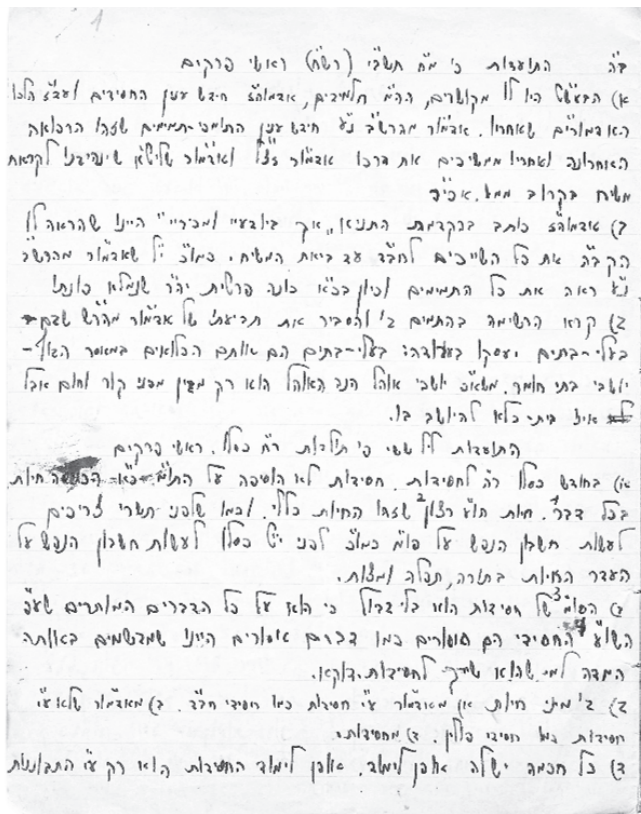 1
ב"ה התועדות כ' מ"ח תשב"י (רש"ח) ראשי פרקים
א) הבעש"ט היו לו מקושרים, הה"מ תלמידים, אדמוה"ז חידש ענין החסידים ועד"ז הלכו
האדמורי"ם שאחריו. אדמו"ר מהרש"ב נ"ע חידש ענין התומכי-תמימים שזהו הרפואה
האחרונה ואחריו ממשיכים את דרכו אדמו"ר זצ"ל ואדמו"ר שליט"א שינהיגנו לקראת
משיח בקרוב ממש. אכי"ר
ב) אדמוה"ז כותב בהקדמת התניא "אך ביודעיי ומכיריי" היינו שהראה לו
הקב"ה את כל השייכים לחב"ד עד ביאת המשיח. כמו"כ י"ל שאדמו"ר מהרש"ב
נ"ע ראה את כל התמימים וכיון בכ"א כונה פרטית יה"ר שנמלא כונתו
ג) קרא הרשימה בהתמים ב' והסביר את תביעתו של אדמו"ר מהר"ש שגם
בעלי-בתים יעסקו בעבודה: בעלי-בתים הם אותם הכלואים במאסר הגוף –
יושבי בתי חומר. משא"כ יושבי אוהל הנה האוהל הוא רק מגין מפני קור וחום אבל
אינו בית כלא להיושב בו.
התועדות ליל ששי פ' תולדות ר"ח כסלו. ראשי פרקים
א) בחודש כסלו ר"ה לחסידות. חסידות לא הוסיפה על התו"מ כ"א הכניסה חיות
בכל דבר. חיות הו"ע רצון שזהו החיות כללי. וכמו שלפני תשרי צריכים
לעשות חשבון הנפש על פו"מ כמו"כ לפני י"ט כסלו לעשות חשבון הנפש על
העדר החיות בתורה, תפלה ומצות.
ב) הסו"מ של חסידות הוא בלי גבול כי הוא על כל הדברים המותרים שע"פ
השו"ע החסידי הם אסורים כמו דברים אסורים היינו שמגשמים באותה
המדה למי שהוא שייך לחסידות דוקא.
ג) ב' מיני חיות או מאדמו"ר ע"י חסידות כמו חסידי חב"ד. ב) מאדמו"ר שלא ע"י
חסידות כמו חסידי פולין. ג) מחסידות.
ד) כל חכמה ישלה אופן לימוד. אופן לימוד החסידות הוא רק ע"י התבוננות